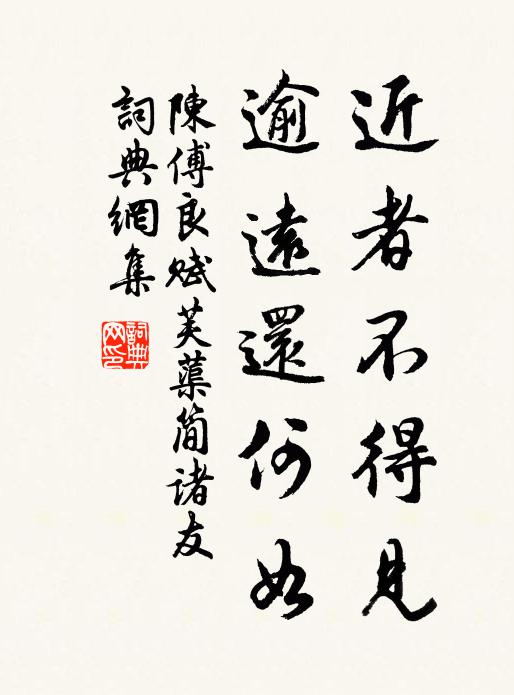 近者不得見
逾遠還何如
陳傅良賦芙蕖简诸友
詞典網集
詞典網印